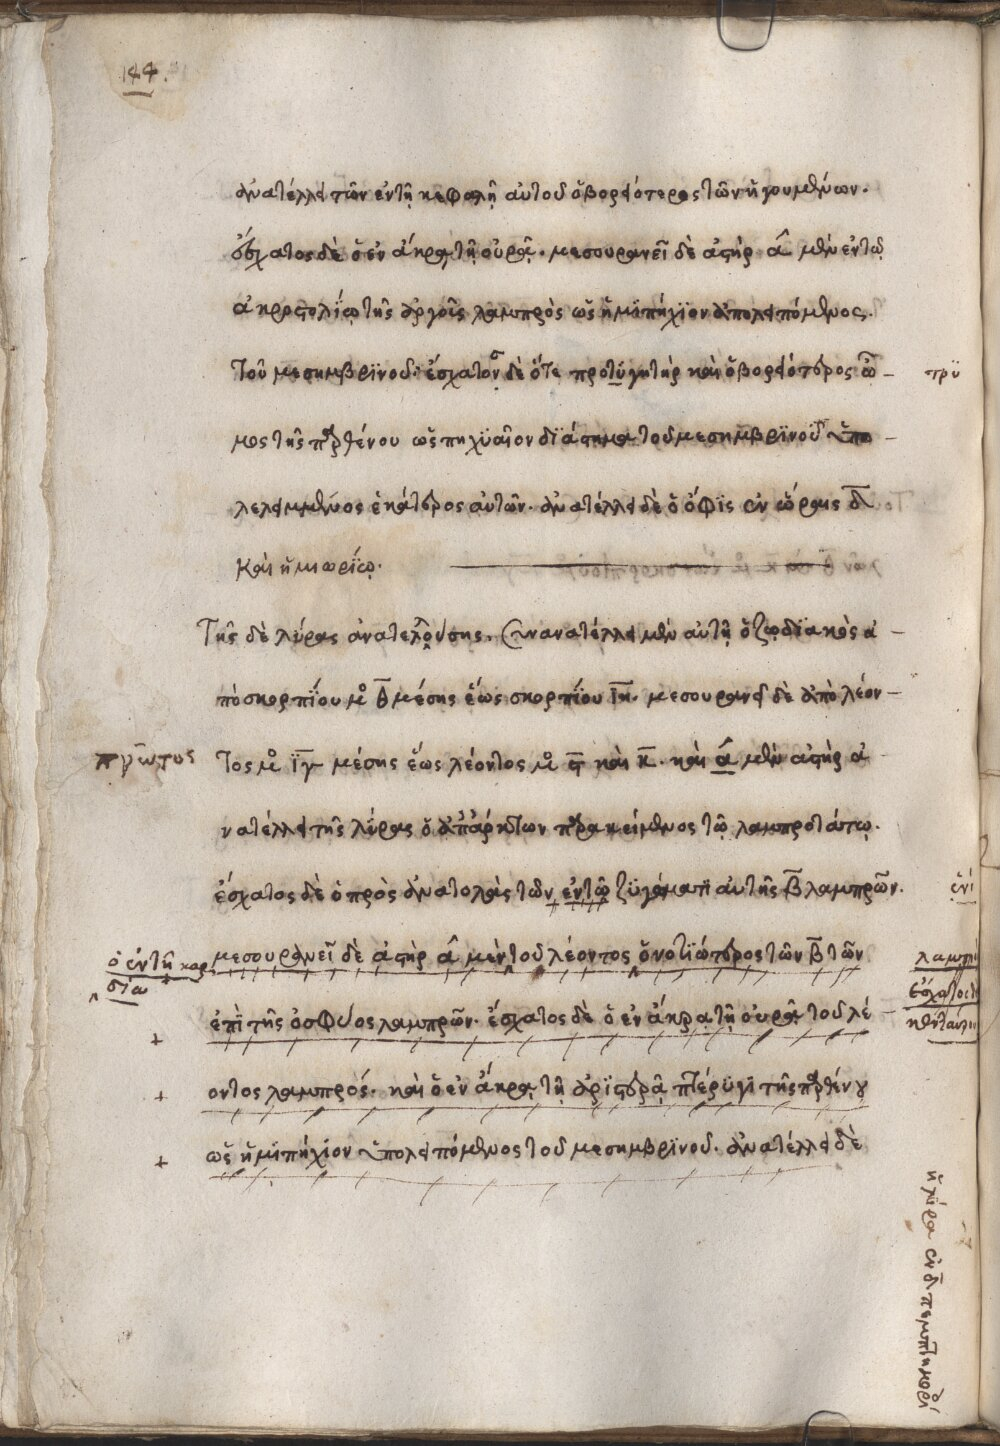 144.
ἀνατέλλει τῶν ἐν τῇ κεφαλῇ αὐτοῦ ὁ βορειότερος τῶν ἡγουμένων.
ἔσχατος δὲ ὁ ἐν ἄκρᾳ τῇ οὐρᾷ. μεσουρανεῖ δὲ ἀστὴρ α̅ μὲν ἐν τῷ
ἀκροστολίῳ τῆς ἀργοῦς λαμπρὸς ὡς ἡμιπήχϊον ἀπολειπόμενος
τοῦ μεσημβρϊνοῦ. ἔσχατον δὲ ὅτε προτύγητὴρ καὶ ὁ βορειότερος ὦ
πρϋ
μος τῆς παρθένου ὡς πηχϋαῖον δϊάστημα τοῦ μεσημβρϊνοῦ ὑπο
λελειμμένος ἑκάτερος αὐτῶν. ἀνατέλλει δὲ ὁ ὄφϊς ἐν ὥραις δ̅
καὶ ἡμιωρΐῳ.
Τῆς δὲ λύρας ἀνατελλούσης. συνανατέλλει μὲν αὐτῇ ὁ ζῳδϊακὸς ἀ
πὸ σκορπΐου μο θ̅ μέσης ἕως σκορπΐου ι̅η̅. μεσουρανεῖ δὲ ἀπὸ λέον
πρῶτος
τος μο ι̅γ̅ μέσης ἕως λέοντος μο ϛ̅ καὶ κ̅. καὶ α̅ μὲν ἀστὴρ ἀ
νατέλλει τῆς λύρας ὁ ἀπάρκτων παρακείμενος τῷ λαμπροτάτῳ.
ἔσχατος δὲ ὁ πρὸς ἀνατολὰς τῶν ἐν τῷ ζϋγώματϊ αὐτῆς β̅ λαμπρῶν.
ἑνὶ
μεσουρανεῖ δὲ ἀστὴρ α̅ μὲν τοῦ λέοντος ὁ νοτϊώτερος τῶν β̅ τῶν
ὁ ἐν τῇ καρ
δία
ἐπὶ τῆς ὀσφύος λαμπρῶν. ἔσχατος δὲ ὁ ἐν ἄκρᾳ τῇ οὐρᾷ τοῦ λέ
οντος λαμπρός. καὶ ὁ ἐν ἄκρᾳ τῇ ἀρϊστερᾷ πτέρϋγϊ τῆς παρθένου
ὡς ἡμϊπήχϊον ὑπολειπόμενος τοῦ μεσημβρϊνοῦ. ἀνατέλλει δὲ